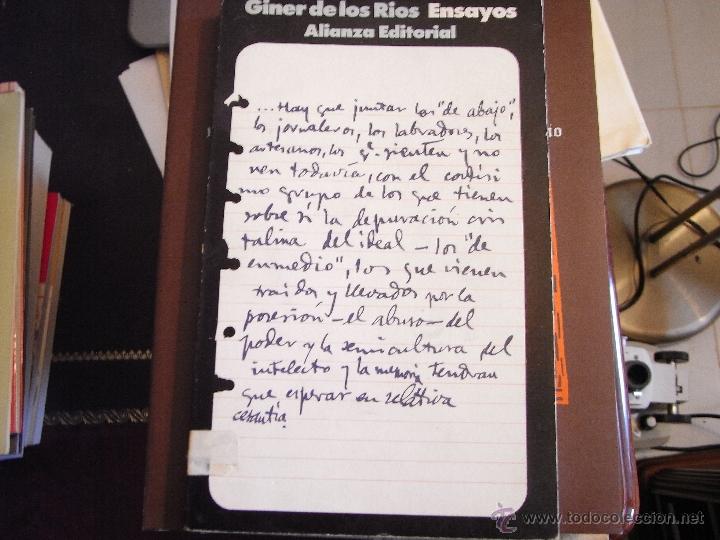 Giner de los Rios Ensayos
Alianza Editorial
... Hay que juntar los "de abajo",
los jornaleros, los labradores, los
artesanos, los q. sienten y no
ven todavía, con el cortísi
mo grupo de los que tienen
sobre sí la depuración cris
talina del ideal – los "de
enmedio", los que vienen
traidos y llevados por la
posesión – el abuso – del
poder y la semicultura del
intelecto y la memoria tendran
que esperar en relativa
cesantía.
10
© www.todocoleccion.net